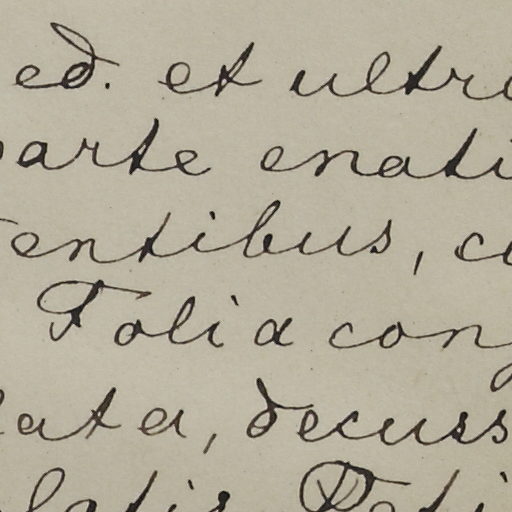 ed. et ultro
parte enati
entibus, co
Folia con
lata, decuss
latis. Peti